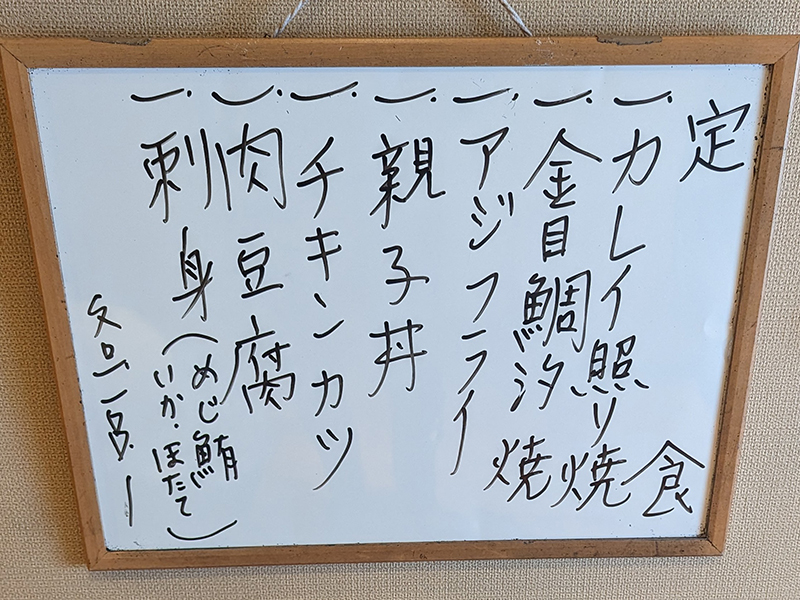 定食
一.カレイ照り焼
一.金目鯛汐焼
一.アジフライ
一.親子丼
一.チキンカツ
一.肉豆腐
一.刺身(めじ鮪
いか・ほたて)